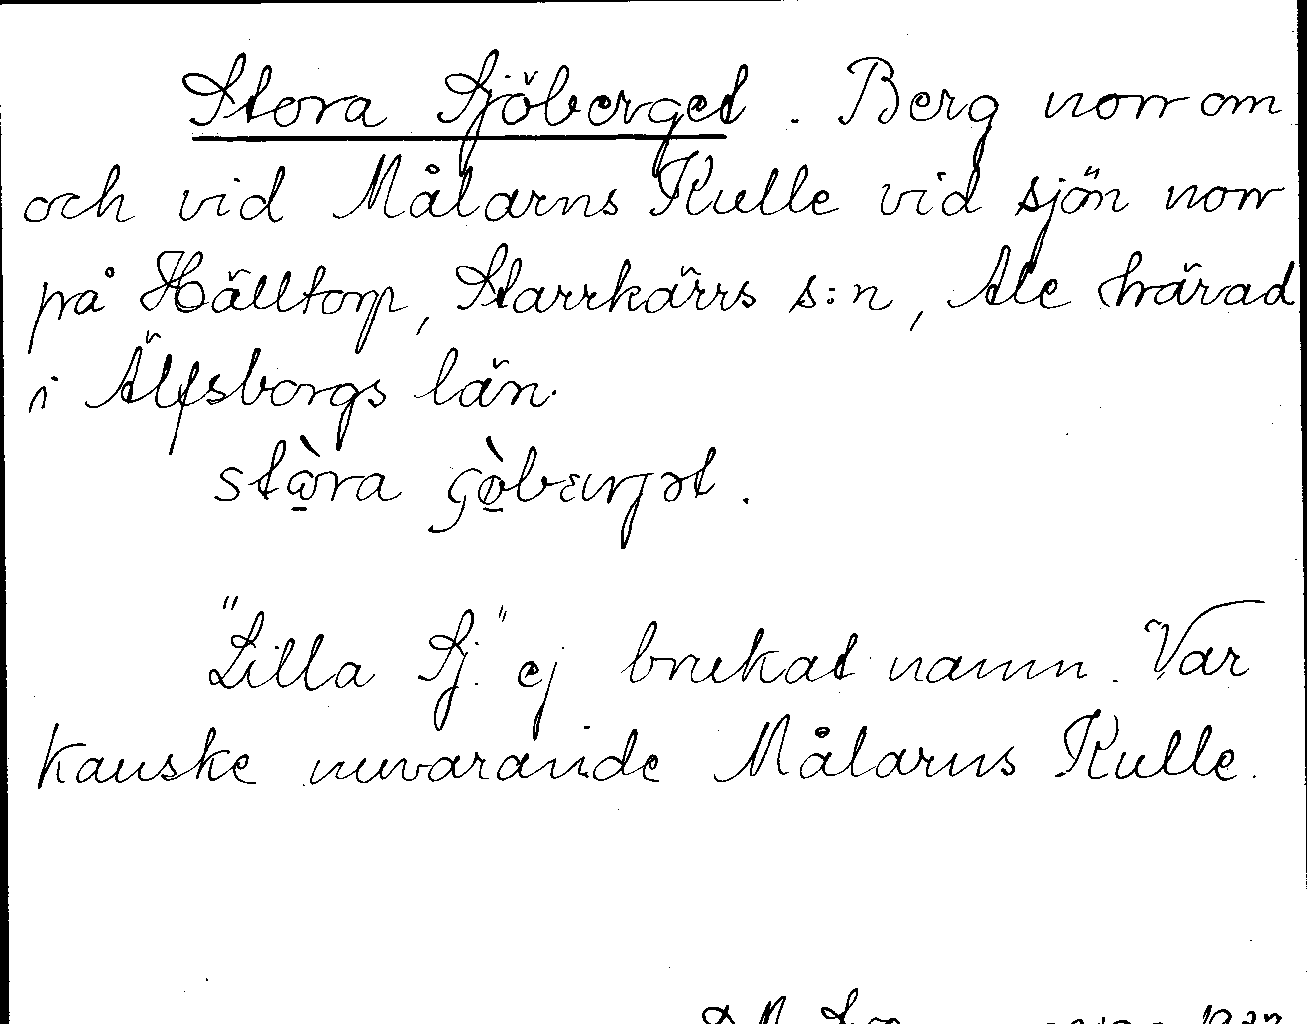 Stora Sjöberget. Berg norr om
och vid Målarns Kulle vid sjön norr
på Hälltorp, Starrkärrs s:n, Ale härad
i Älfsborgs län.
stⱥ̀ra
"Lilla Sj." ej brukat namn. Var
kanske nuvarande Målarns Kulle.